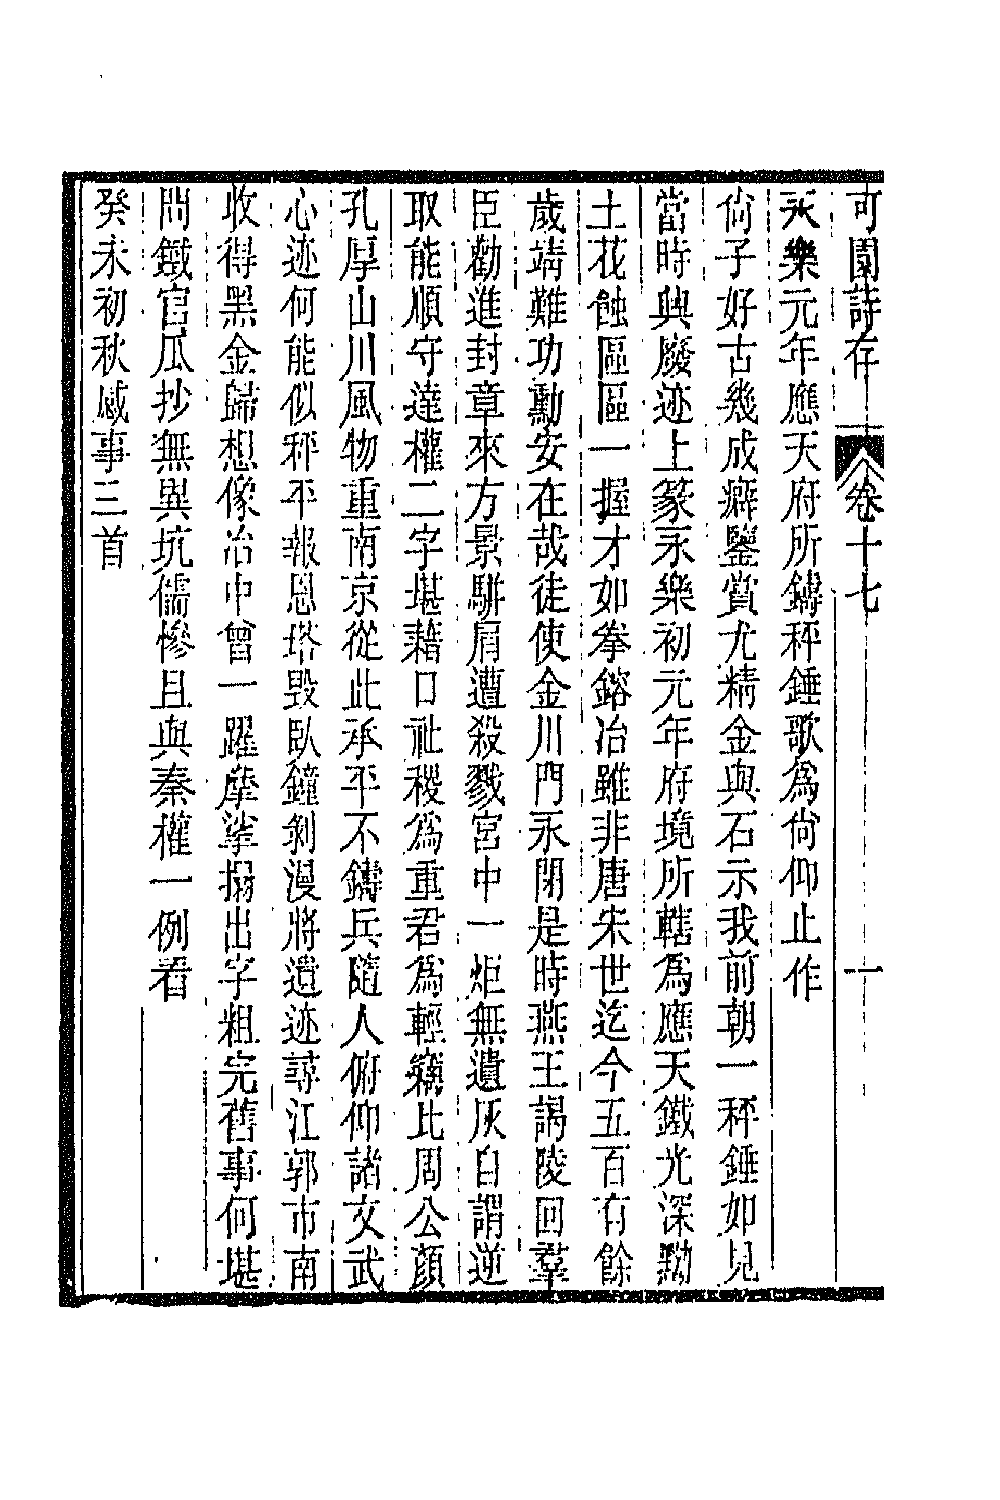 可園詩存 卷十七 一
永樂元年應天府所鑄秤錘歌為尙仰止作
尙子好古幾成癖鑒賞尤精金與石示我前朝一秤錘如見
當時興廢迹上篆永樂初元年府境所轄為應天鐵光深黝
土花蝕區區一握才如拳鎔冶雖非唐宋世迄今五百有餘
歲靖難功勳安在哉徒使金川門永閉是時燕王謁陵回羣
臣勸進封章來方景駢肩遭殺戮宮中一炬無遺灰自謂逆
取能順守達權二字堪藉口社稷為重君為輕竊比周公顏
孔厚山川風物重南京從此承平不鑄兵隨人俯仰諸文武
心迹何能似秤平報恩塔毀臥鐘剝漫將遺迹尋江郭市南
收得黑金歸想像冶中曾一躍摩挲搨出字粗完舊事何堪
問鐵官瓜抄無異坑儒慘且與秦權一例看
癸未初秋感事三首